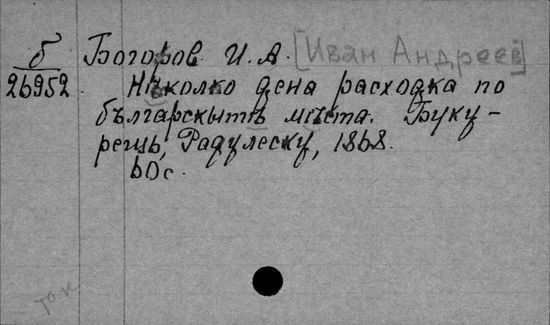 б Богоров И. А. [Иван Андреев]
26952. Нѣколко дена расходка по
българскытѣ мѣста. Буку-
рещь, Радулеску, 1868.
60с.